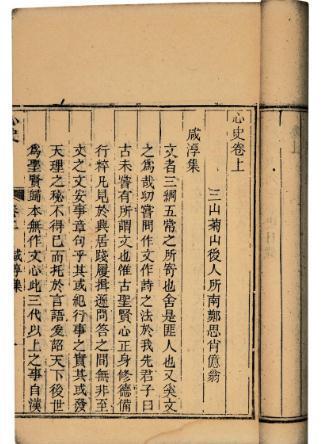 心史卷上
咸淳集
三山菊山後人所南鄭思肖億翁
文者三綱五常之所寄也舍是匪人也又奚文
之為哉切嘗問作文作詩之法於我先君子曰
古未嘗有所謂文也惟古聖賢心正身修德備
行粹凡見於興居踐履揖遜問答之間無非至
文之文安事章句乎其或紀行事之實其或發
天理之秘不得已而托於言語爰詔天下後世
為聖賢歸本無作文心此三代以上之事自漢
心史
卷上
咸淳集